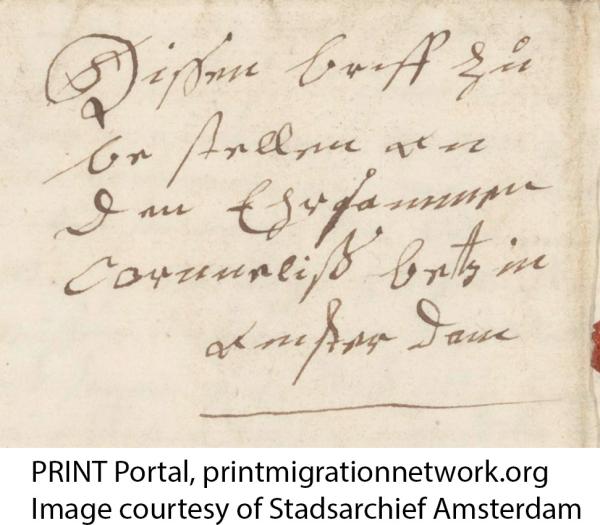 Dissen briff zu
be stellen an
den Ehrsammen
Cornneliß betz in
amster dam
PRINT Portal, printmigrationnetwork.org
Image courtesy of Stadsarchief Amsterdam